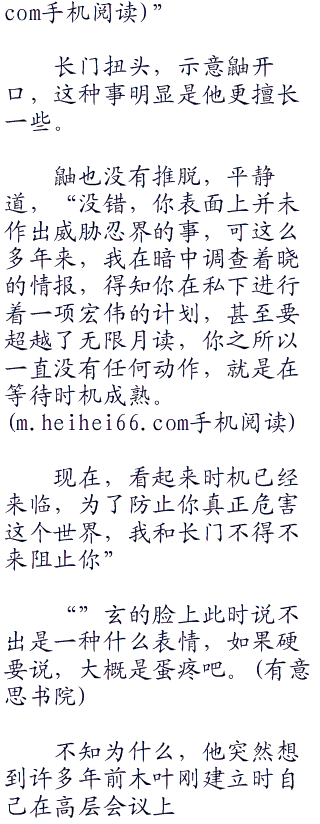 com手机阅读)”
长门扭头，示意鼬开
口，这种事明显是他更擅长
一些。
鼬也没有推脱，平静
道，“没错，你表面上并未
作出威胁忍界的事，可这么
多年来，我在暗中调查着晓
的情报，得知你在私下进行
着一项宏伟的计划，甚至要
超越了无限月读，你之所以
一直没有任何动作，就是在
等待时机成熟。
(m.heihei66.com手机阅读)
现在，看起来时机已经
来临，为了防止你真正危害
这个世界，我和长门不得不
来阻止你”
“”玄的脸上此时说不
出是一种什么表情，如果硬
要说，大概是蛋疼吧。(有意
思书院)
不知为什么，他突然想
到许多年前木叶刚建立时自
己在高层会议上